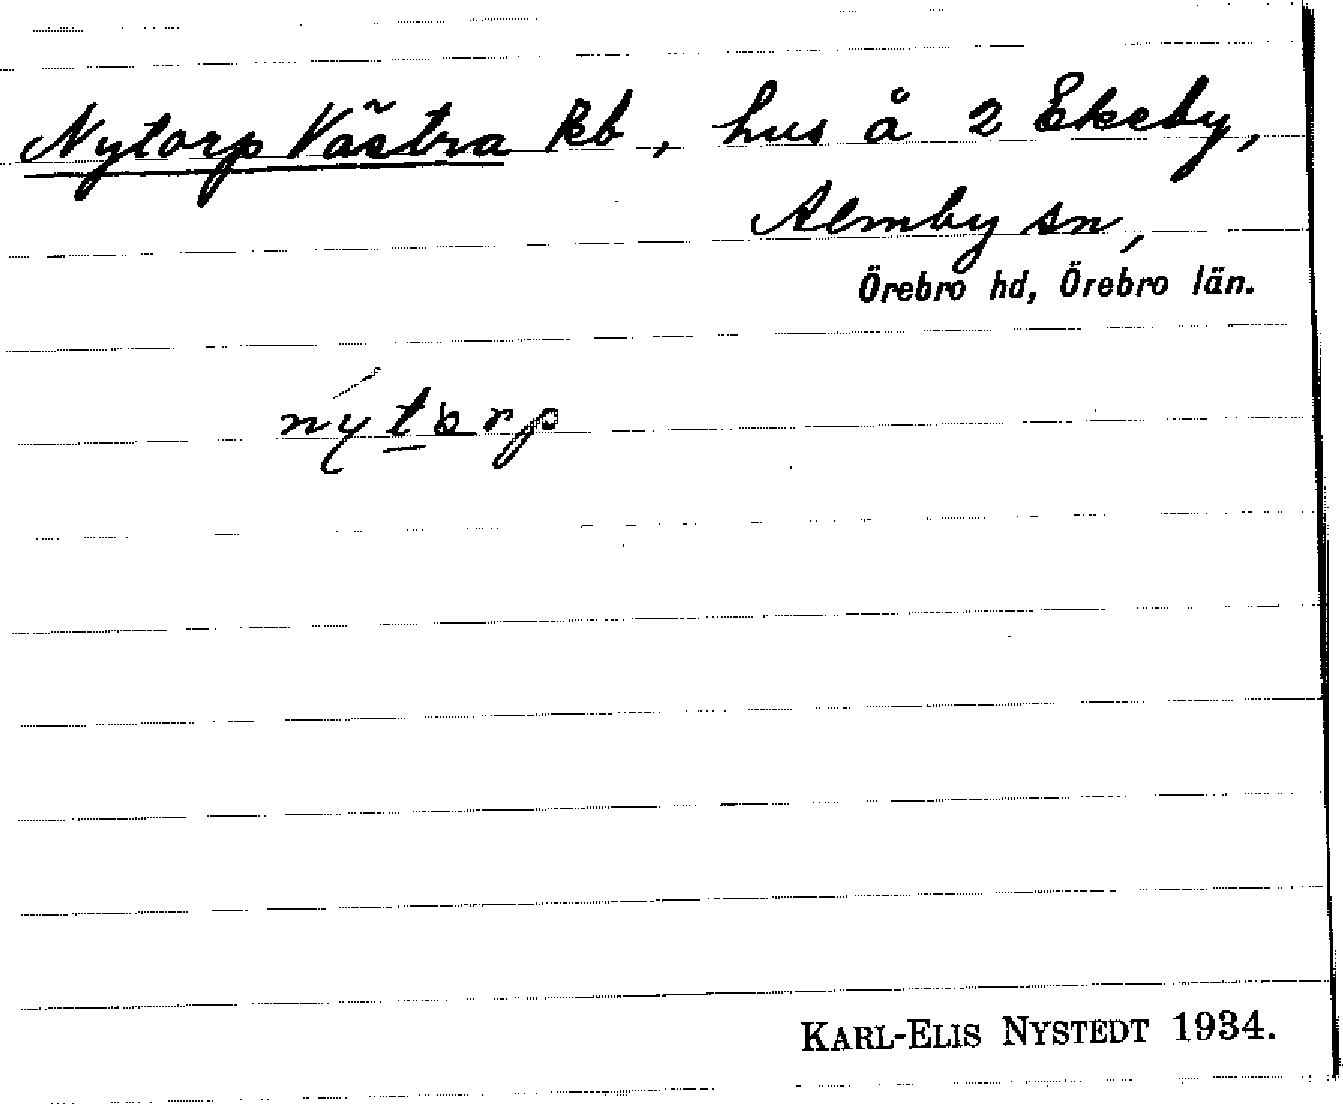 Nytorp Västra kb, hus å 2 Ekeby,
Almby sn,
Örebro hd, Örebro län.
nýtorp
KARL-ELIS NYSTEDT 1934.